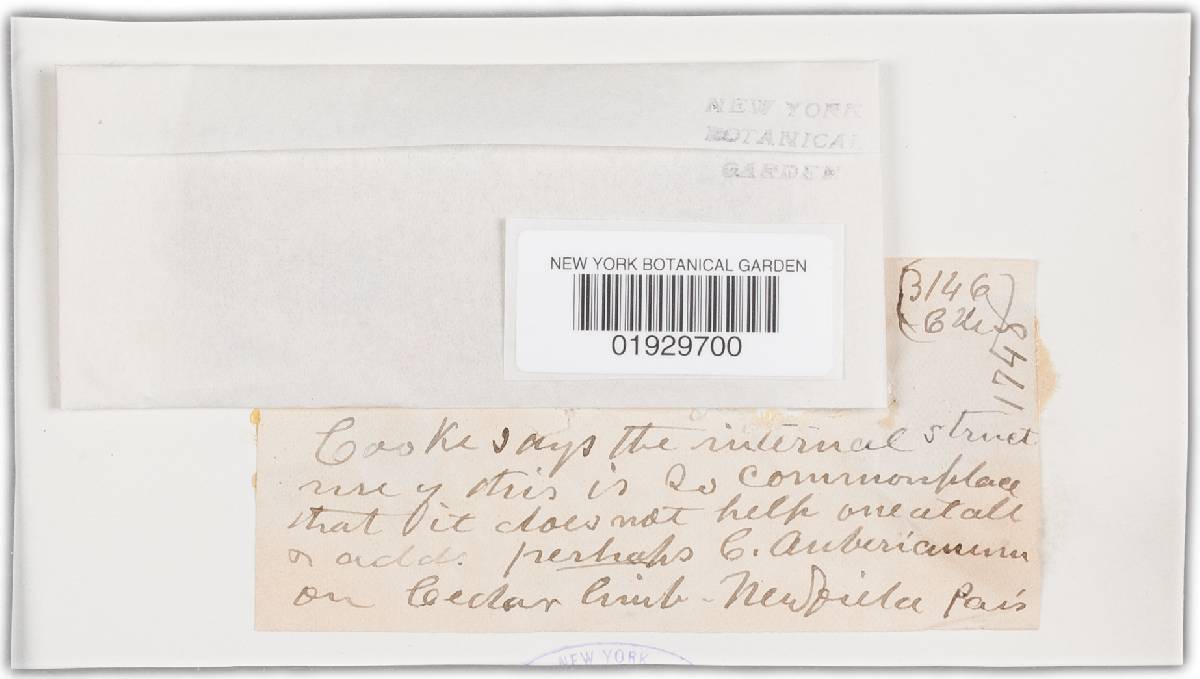 NEW YORK
BOTANICAL
GARDEN
NEW YORK BOTANICAL GARDEN
01929700
(3146)
1748
Cooke says the internal struct
ure of this is so commonplace
that it does not help one at all
& adds perhaps C. Auberianum
on Cedar limb - Newfield
NEW YORK